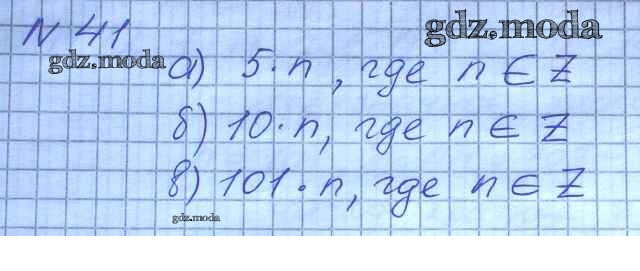 gdz.moda
N 41
gdz.moda
а) 5·n, где n ∈ Z
б) 10·n, где n ∈ Z
в) 101·n, где n ∈ Z
gdz.moda